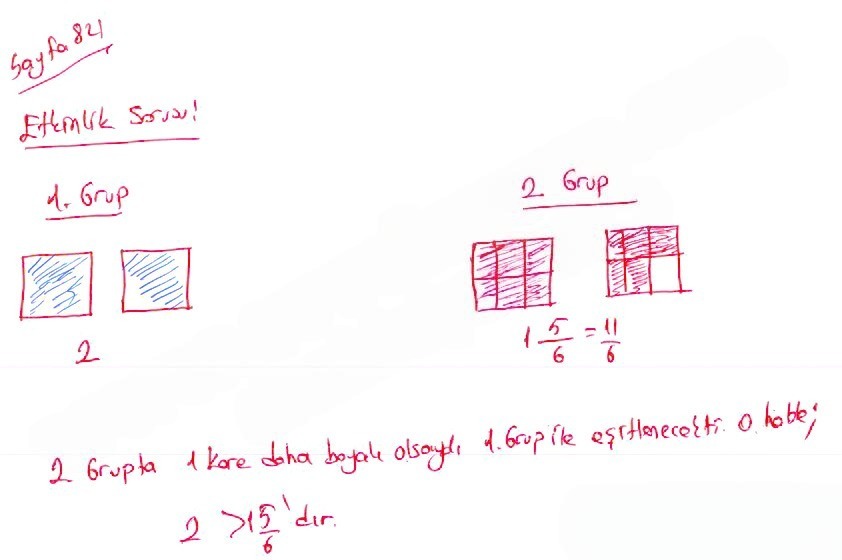 Sayfa 84
Etkinlik Sorusu!
1. Grup
2 Grup
2
1 5/6 = 11/6
2 Grupta 1 kare daha boyalı olsaydı 1. Grup ile eşitlenecekti. O halde;
2 > 1 5/6 'dır.